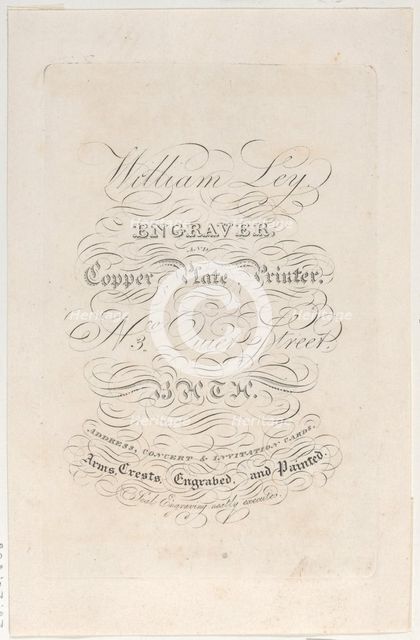 William Ley.
ENGRAVER,
AND
Copper Plate Printer.
No. 3, Quiet Street.
BATH.
ADDRESS, CONCERT & INVITATION CARDS.
Arms, Crests, Engraved, and Painted.
Seal Engraving neatly executed.